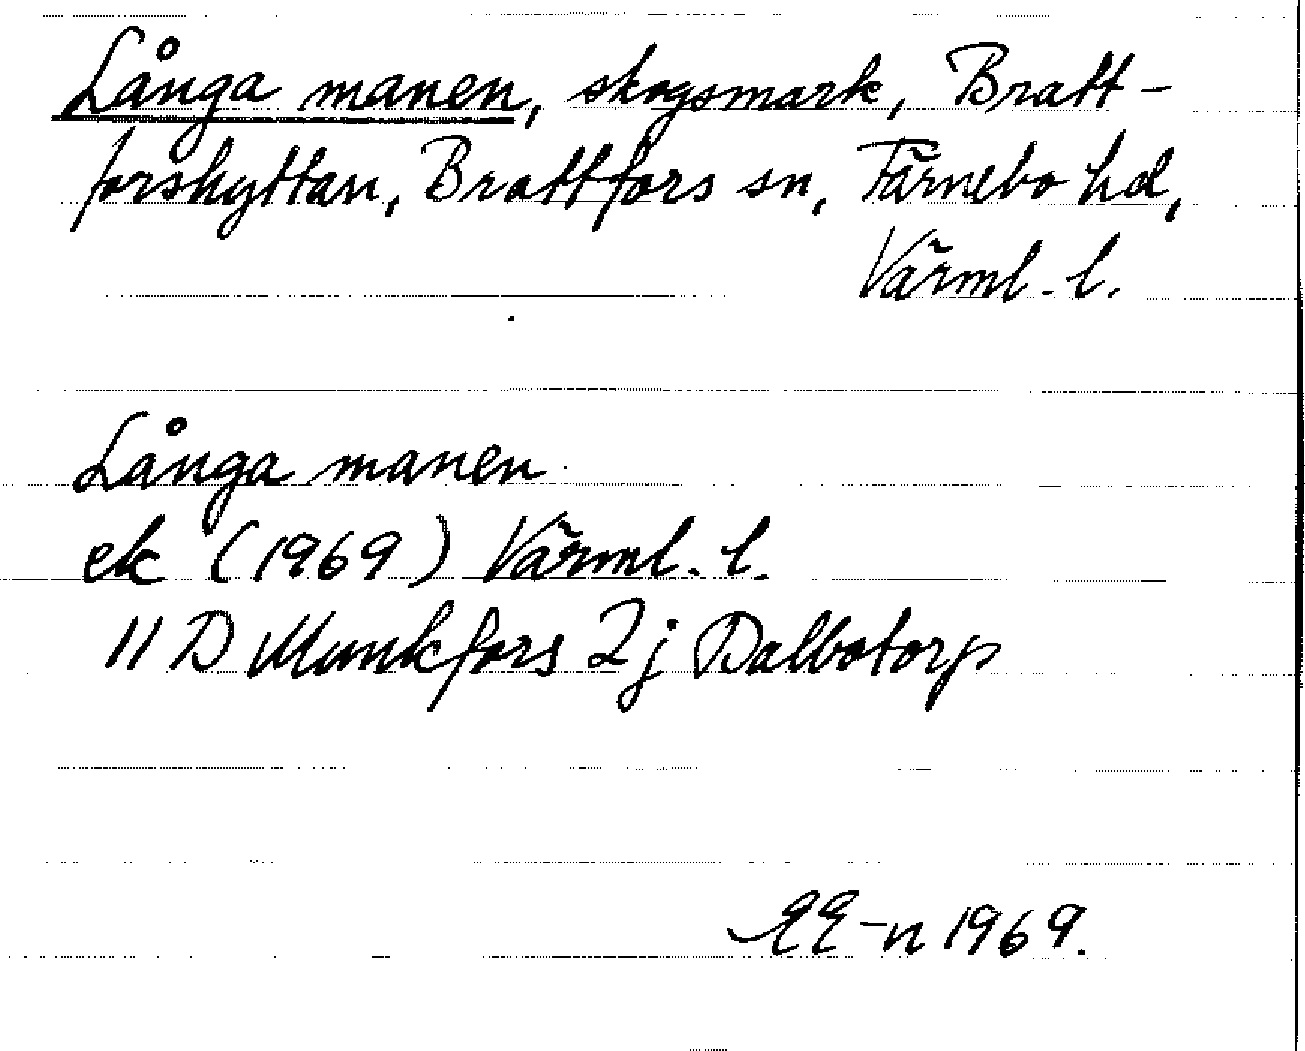 Långa manen, skogsmark, Bratt-
forshyttan, Brattfors sn, Färnebo hd,
Värml. l.
Långa manen
ek (1969) Värml. l.
11 D Munkfors 2j Dalbotorp
EE-n 1969.